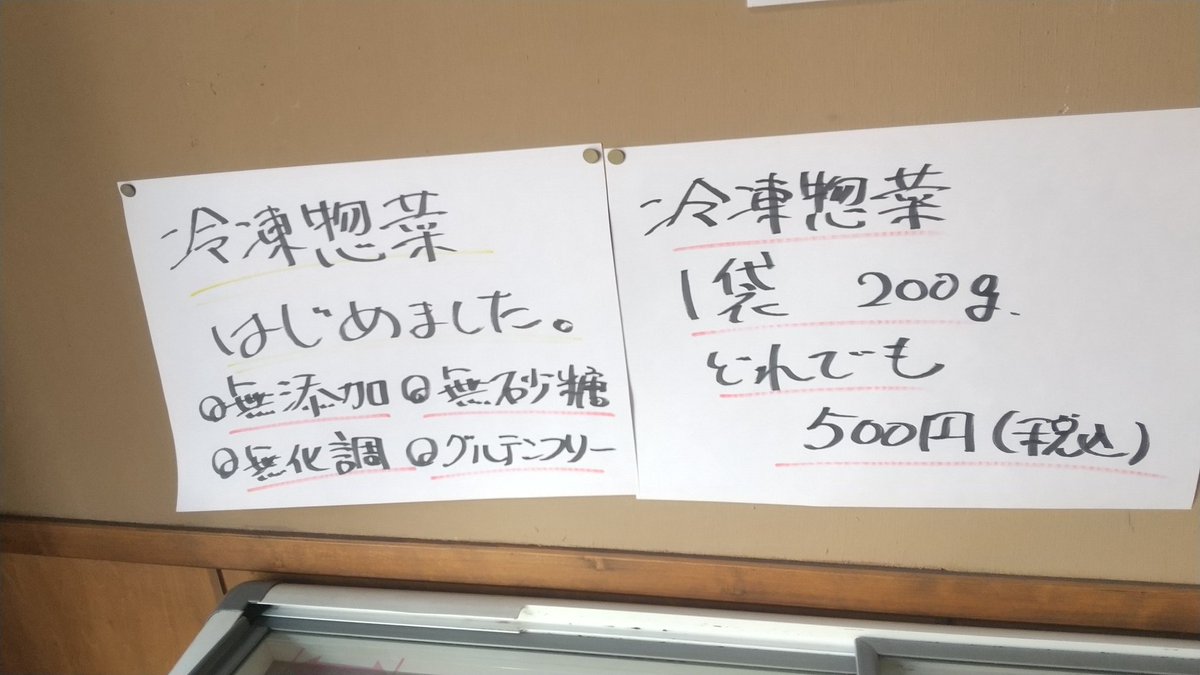 冷凍惣菜
はじめました。
●無添加 ●無砂糖
●無化調 ●グルテンフリー
冷凍惣菜
1袋 200g.
どれでも
500円(税込)